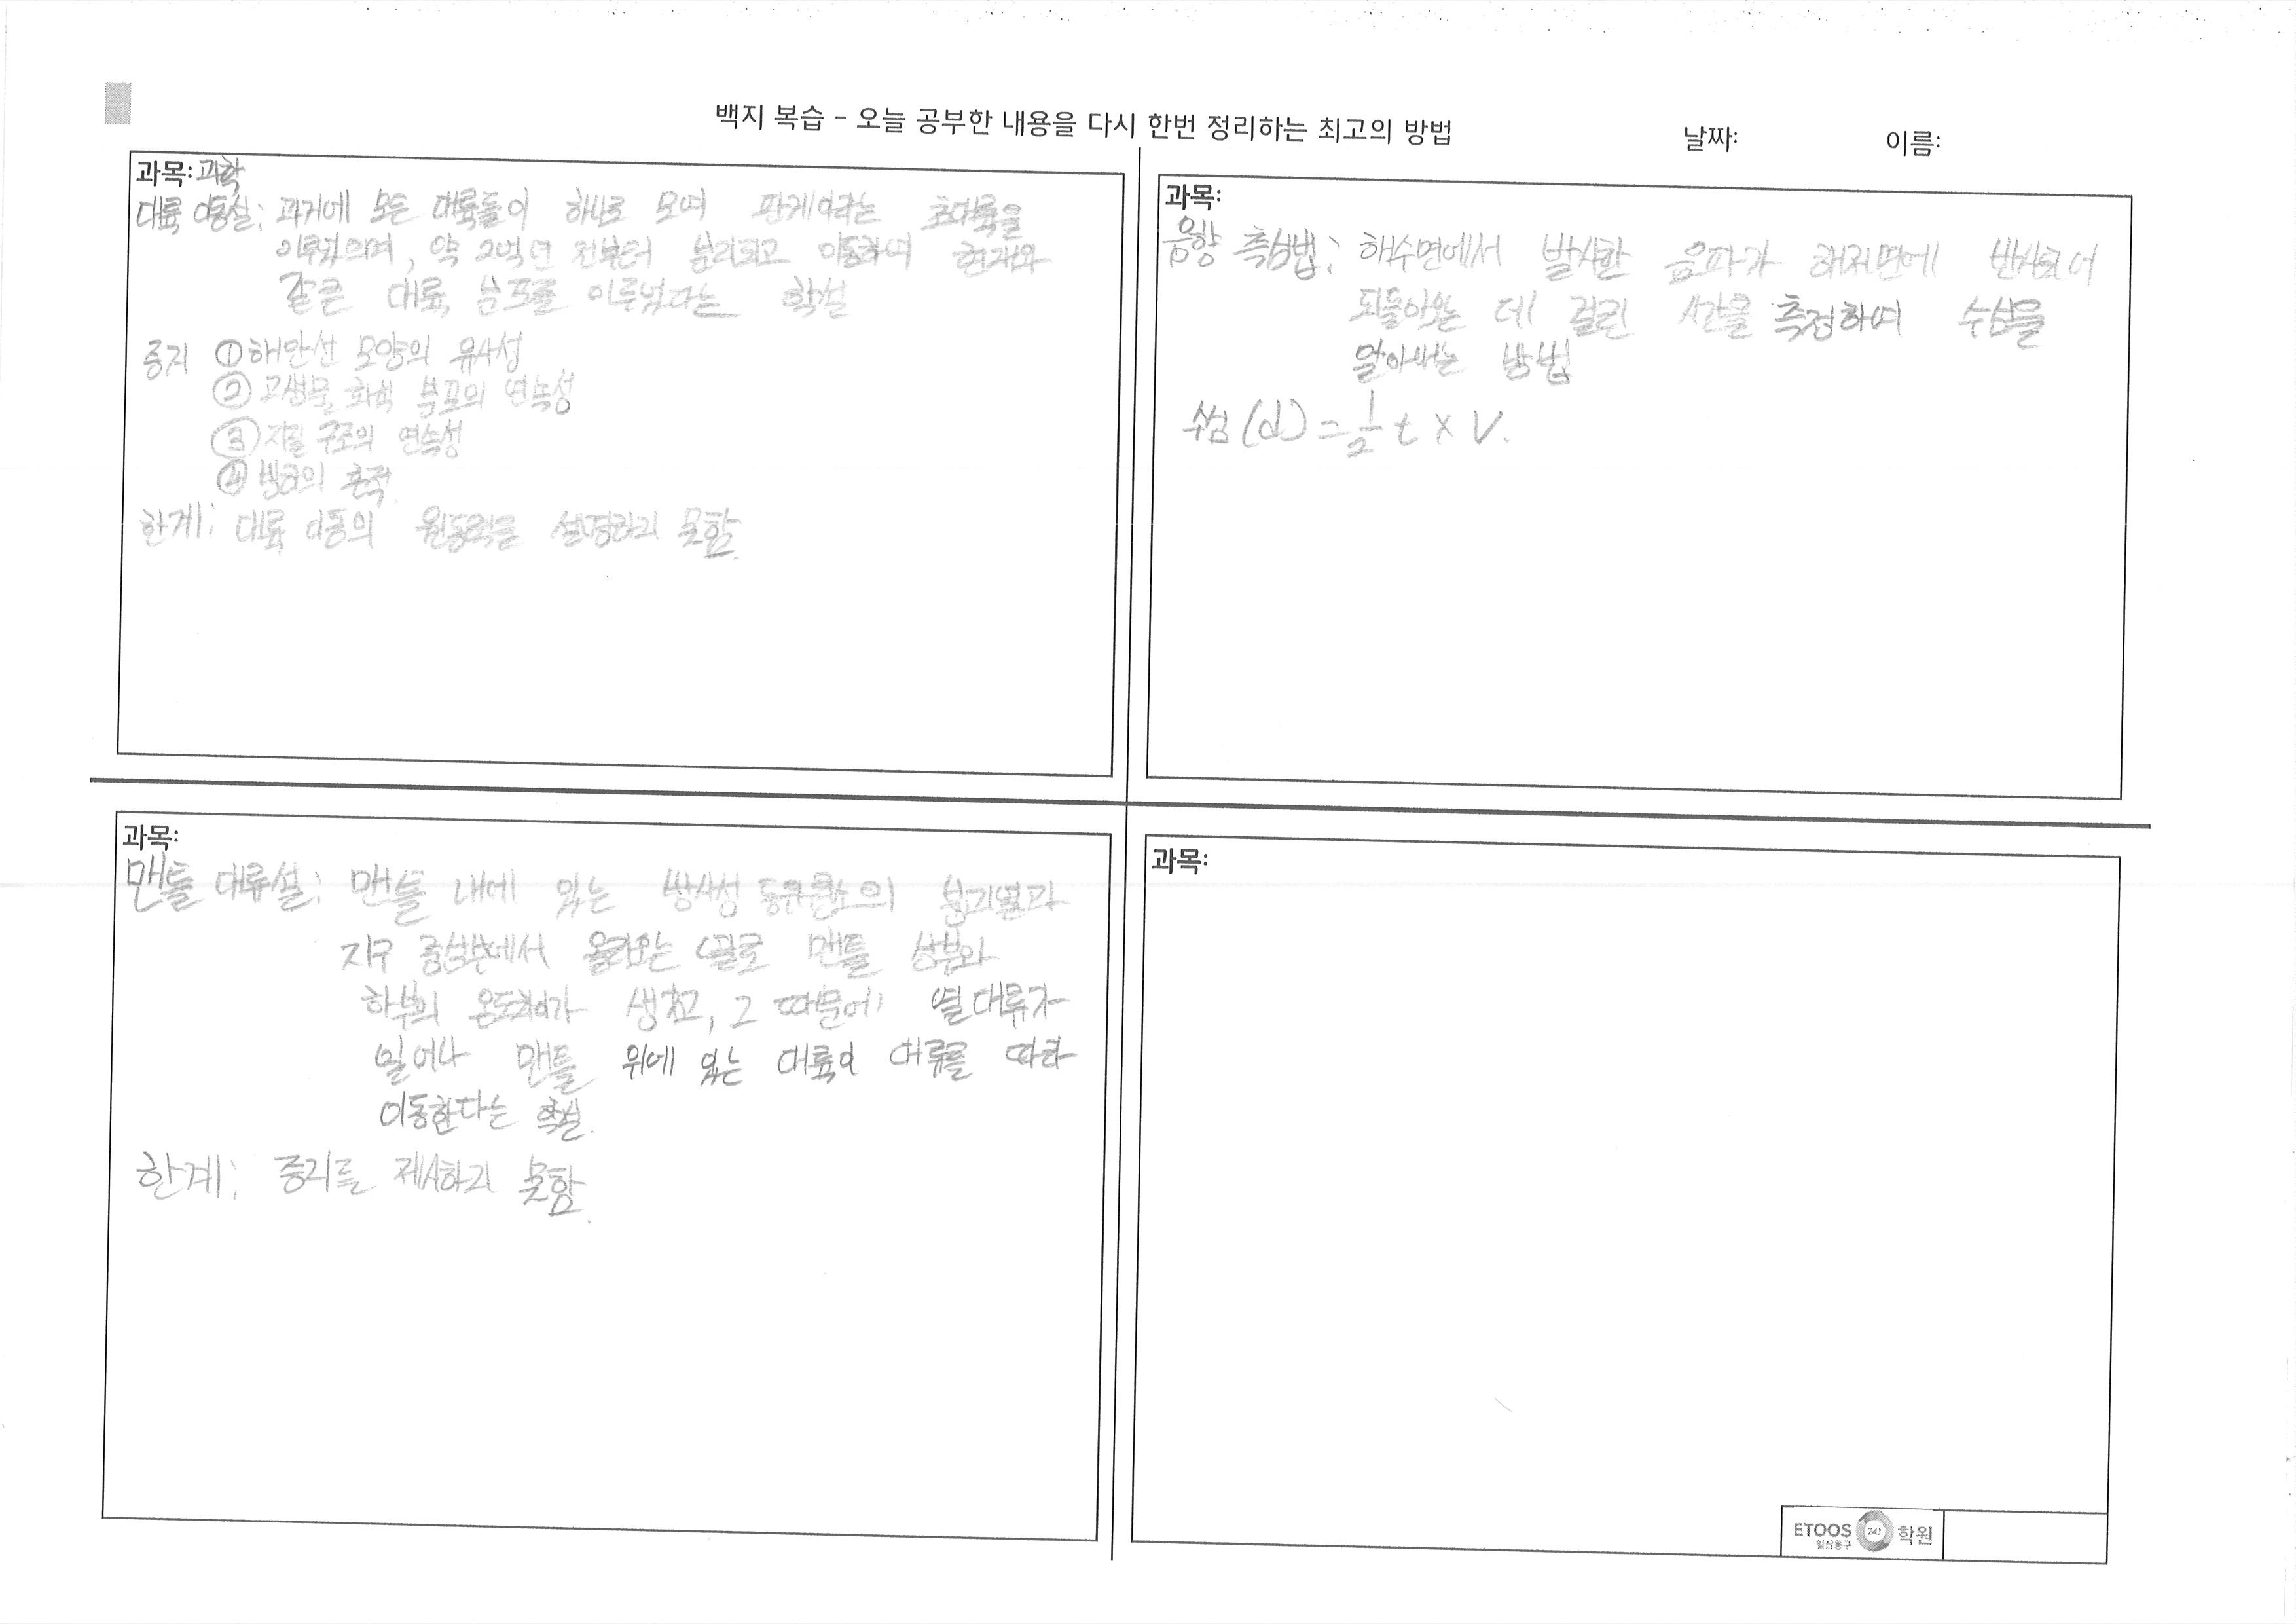 백지 복습 - 오늘 공부한 내용을 다시 한번 정리하는 최고의 방법 날짜: 이름:
과목: 과학
대륙 이동설: 과거에 모든 대륙들이 하나로 모여 판게아라는 초대륙을
이루었으며, 약 2억년 전부터 분리되고 이동하여 현재와
같은 대륙 분포를 이루었다는 학설
증거 ① 해안선 모양의 유사성
② 고생물 화석 분포의 연속성
③ 지질 구조의 연속성
④ 빙하의 흔적.
한계: 대륙 이동의 원동력을 설명하지 못함.
과목:
음향 측심법: 해수면에서 발사한 음파가 해저면에 반사되어
되돌아오는 데 걸린 시간을 측정하여 수심을
알아내는 방법
수심(d) = 1/2 t × V.
과목:
맨틀 대류설: 맨틀 내에 있는 방사성 동위원소의 붕괴열과
지구 중심부에서 올라오는 열로 맨틀 상부와
하부의 온도차이가 생기고, 그 때문에 열대류가
일어나 맨틀 위에 있는 대륙이 대류를 따라
이동한다는 학설.
한계: 증거를 제시하지 못함.
과목:
ETOOS 247 학원
일산동구